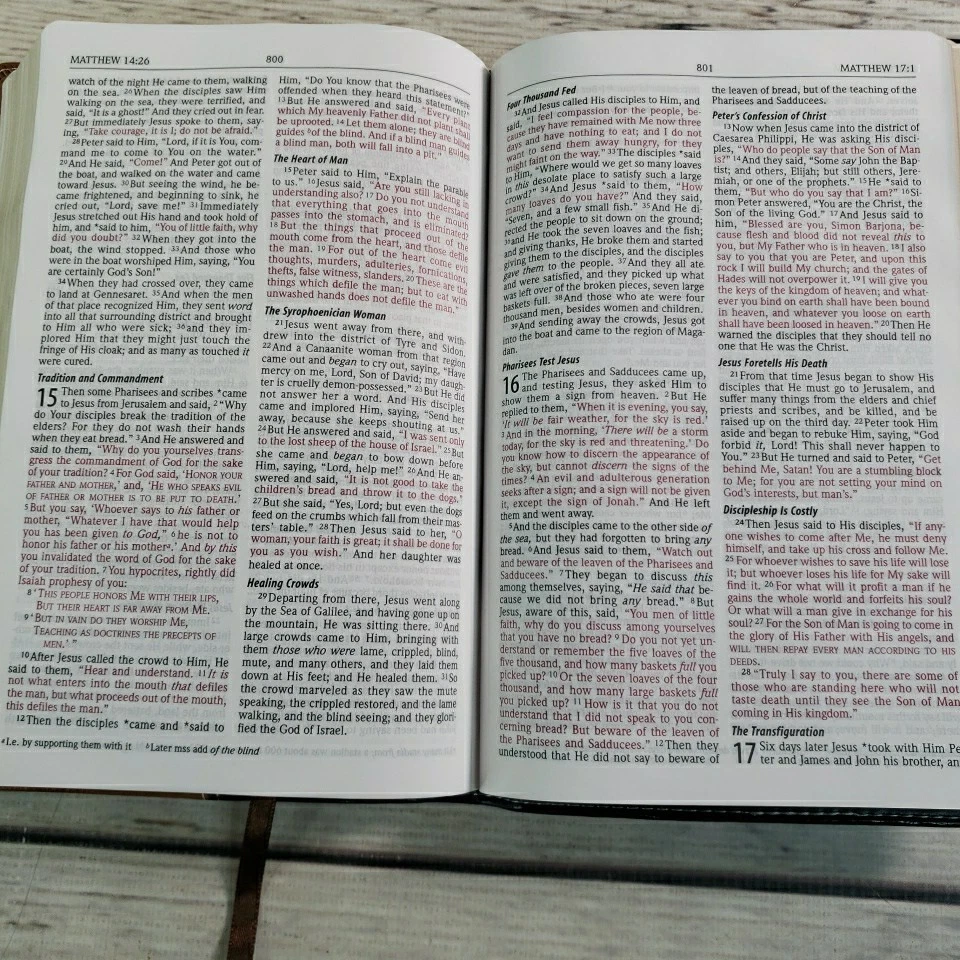 MATTHEW 14:26
800
watch of the night He came to them, walking
on the sea. 26When the disciples saw Him
walking on the sea, they were terrified, and
said, "It is a ghost!" And they cried out in fear.
27But immediately Jesus spoke to them, say-
ing, "Take courage, it is I; do not be afraid."
28Peter said to Him, "Lord, if it is You, com-
mand me to come to You on the water."
29And He said, "Come!" And Peter got out of
the boat, and walked on the water and came
toward Jesus. 30But seeing the wind, he be-
came frightened, and beginning to sink, he
cried out, "Lord, save me!" 31Immediately
Jesus stretched out His hand and took hold of
him, and *said to him, "You of little faith, why
did you doubt?" 32When they got into the
boat, the wind stopped. 33And those who
were in the boat worshiped Him, saying, "You
are certainly God's Son!"
34When they had crossed over, they came
to land at Gennesaret. 35And when the men
of that place recognized Him, they sent word
into all that surrounding district and brought
to Him all who were sick; 36and they im-
plored Him that they might just touch the
fringe of His cloak; and as many as touched it
were cured.
Tradition and Commandment
15 Then some Pharisees and scribes *came
to Jesus from Jerusalem and said, 2"Why
do Your disciples break the tradition of the
elders? For they do not wash their hands
when they eat bread." 3And He answered and
said to them, "Why do you yourselves trans-
gress the commandment of God for the sake
of your tradition? 4For God said, 'HONOR YOUR
FATHER AND MOTHER,' and, 'HE WHO SPEAKS EVIL
OF FATHER OR MOTHER IS TO BE PUT TO DEATH.'
5But you say, 'Whoever says to his father or
mother, "Whatever I have that would help
you has been given to God," 6he is not to
honor his father or his motherª.' And by this
you invalidated the word of God for the sake
of your tradition. 7You hypocrites, rightly did
Isaiah prophesy of you:
8'THIS PEOPLE HONORS ME WITH THEIR LIPS,
BUT THEIR HEART IS FAR AWAY FROM ME.
9'BUT IN VAIN DO THEY WORSHIP ME,
TEACHING AS DOCTRINES THE PRECEPTS OF
MEN.'"
10After Jesus called the crowd to Him, He
said to them, "Hear and understand. 11It is
not what enters into the mouth that defiles
the man, but what proceeds out of the mouth,
this defiles the man."
12Then the disciples *came and *said to
ªI.e. by supporting them with it ᵇLater mss add of the blind
Him, "Do You know that the Pharisees were
offended when they heard this statement?"
13But He answered and said, "Every plant
which My heavenly Father did not plant shall
be uprooted. 14Let them alone; they are blind
guides ᵇof the blind. And if a blind man guides
a blind man, both will fall into a pit."
The Heart of Man
15Peter said to Him, "Explain the parable
to us." 16Jesus said, "Are you still lacking in
understanding also? 17Do you not understand
that everything that goes into the mouth
passes into the stomach, and is eliminated?
18But the things that proceed out of the
mouth come from the heart, and those defile
the man. 19For out of the heart come evil
thoughts, murders, adulteries, fornications,
thefts, false witness, slanders. 20These are the
things which defile the man; but to eat with
unwashed hands does not defile the man."
The Syrophoenician Woman
21Jesus went away from there, and with-
drew into the district of Tyre and Sidon.
22And a Canaanite woman from that region
came out and began to cry out, saying, "Have
mercy on me, Lord, Son of David; my daugh-
ter is cruelly demon-possessed." 23But He did
not answer her a word. And His disciples
came and implored Him, saying, "Send her
away, because she keeps shouting at us."
24But He answered and said, "I was sent only
to the lost sheep of the house of Israel." 25But
she came and began to bow down before
Him, saying, "Lord, help me!" 26And He an-
swered and said, "It is not good to take the
children's bread and throw it to the dogs."
27But she said, "Yes, Lord; but even the dogs
feed on the crumbs which fall from their mas-
ters' table." 28Then Jesus said to her, "O
woman, your faith is great; it shall be done for
you as you wish." And her daughter was
healed at once.
Healing Crowds
29Departing from there, Jesus went along
by the Sea of Galilee, and having gone up on
the mountain, He was sitting there. 30And
large crowds came to Him, bringing with
them those who were lame, crippled, blind,
mute, and many others, and they laid them
down at His feet; and He healed them. 31So
the crowd marveled as they saw the mute
speaking, the crippled restored, and the lame
walking, and the blind seeing; and they glori-
fied the God of Israel.
801
MATTHEW 17:1
Four Thousand Fed
32And Jesus called His disciples to Him, and
said, "I feel compassion for the people, be-
cause they have remained with Me now three
days and have nothing to eat; and I do not
want to send them away hungry, for they
might faint on the way." 33The disciples *said
to Him, "Where would we get so many loaves
in this desolate place to satisfy such a large
crowd?" 34And Jesus *said to them, "How
many loaves do you have?" And they said,
"Seven, and a few small fish." 35And He di-
rected the people to sit down on the ground;
36and He took the seven loaves and the fish;
and giving thanks, He broke them and started
giving them to the disciples, and the disciples
gave them to the people. 37And they all ate
and were satisfied, and they picked up what
was left over of the broken pieces, seven large
baskets full. 38And those who ate were four
thousand men, besides women and children.
39And sending away the crowds, Jesus got
into the boat and came to the region of Maga-
dan.
Pharisees Test Jesus
16 The Pharisees and Sadducees came up,
and testing Jesus, they asked Him to
show them a sign from heaven. 2But He
replied to them, "When it is evening, you say,
'It will be fair weather, for the sky is red.'
3And in the morning, 'There will be a storm
today, for the sky is red and threatening.' Do
you know how to discern the appearance of
the sky, but cannot discern the signs of the
times? 4An evil and adulterous generation
seeks after a sign; and a sign will not be given
it, except the sign of Jonah." And He left
them and went away.
5And the disciples came to the other side of
the sea, but they had forgotten to bring any
bread. 6And Jesus said to them, "Watch out
and beware of the leaven of the Pharisees and
Sadducees." 7They began to discuss this
among themselves, saying, "He said that be-
cause we did not bring any bread." 8But
Jesus, aware of this, said, "You men of little
faith, why do you discuss among yourselves
that you have no bread? 9Do you not yet un-
derstand or remember the five loaves of the
five thousand, and how many baskets full you
picked up? 10Or the seven loaves of the four
thousand, and how many large baskets full
you picked up? 11How is it that you do not
understand that I did not speak to you con-
cerning bread? But beware of the leaven of
the Pharisees and Sadducees." 12Then they
understood that He did not say to beware of
the leaven of bread, but of the teaching of the
Pharisees and Sadducees.
Peter's Confession of Christ
13Now when Jesus came into the district of
Caesarea Philippi, He was asking His disci-
ples, "Who do people say that the Son of Man
is?" 14And they said, "Some say John the Bap-
tist; and others, Elijah; but still others, Jere-
miah, or one of the prophets." 15He *said to
them, "But who do you say that I am?" 16Si-
mon Peter answered, "You are the Christ, the
Son of the living God." 17And Jesus said to
him, "Blessed are you, Simon Barjona, be-
cause flesh and blood did not reveal this to
you, but My Father who is in heaven. 18I also
say to you that you are Peter, and upon this
rock I will build My church; and the gates of
Hades will not overpower it. 19I will give you
the keys of the kingdom of heaven; and what-
ever you bind on earth shall have been bound
in heaven, and whatever you loose on earth
shall have been loosed in heaven." 20Then He
warned the disciples that they should tell no
one that He was the Christ.
Jesus Foretells His Death
21From that time Jesus began to show His
disciples that He must go to Jerusalem, and
suffer many things from the elders and chief
priests and scribes, and be killed, and be
raised up on the third day. 22Peter took Him
aside and began to rebuke Him, saying, "God
forbid it, Lord! This shall never happen to
You." 23But He turned and said to Peter, "Get
behind Me, Satan! You are a stumbling block
to Me; for you are not setting your mind on
God's interests, but man's."
Discipleship Is Costly
24Then Jesus said to His disciples, "If any-
one wishes to come after Me, he must deny
himself, and take up his cross and follow Me.
25For whoever wishes to save his life will lose
it; but whoever loses his life for My sake will
find it. 26For what will it profit a man if he
gains the whole world and forfeits his soul?
Or what will a man give in exchange for his
soul? 27For the Son of Man is going to come in
the glory of His Father with His angels, and
WILL THEN REPAY EVERY MAN ACCORDING TO HIS
DEEDS.
28"Truly I say to you, there are some of
those who are standing here who will not
taste death until they see the Son of Man
coming in His kingdom."
The Transfiguration
17 Six days later Jesus *took with Him Pe
ter and James and John his brother, an